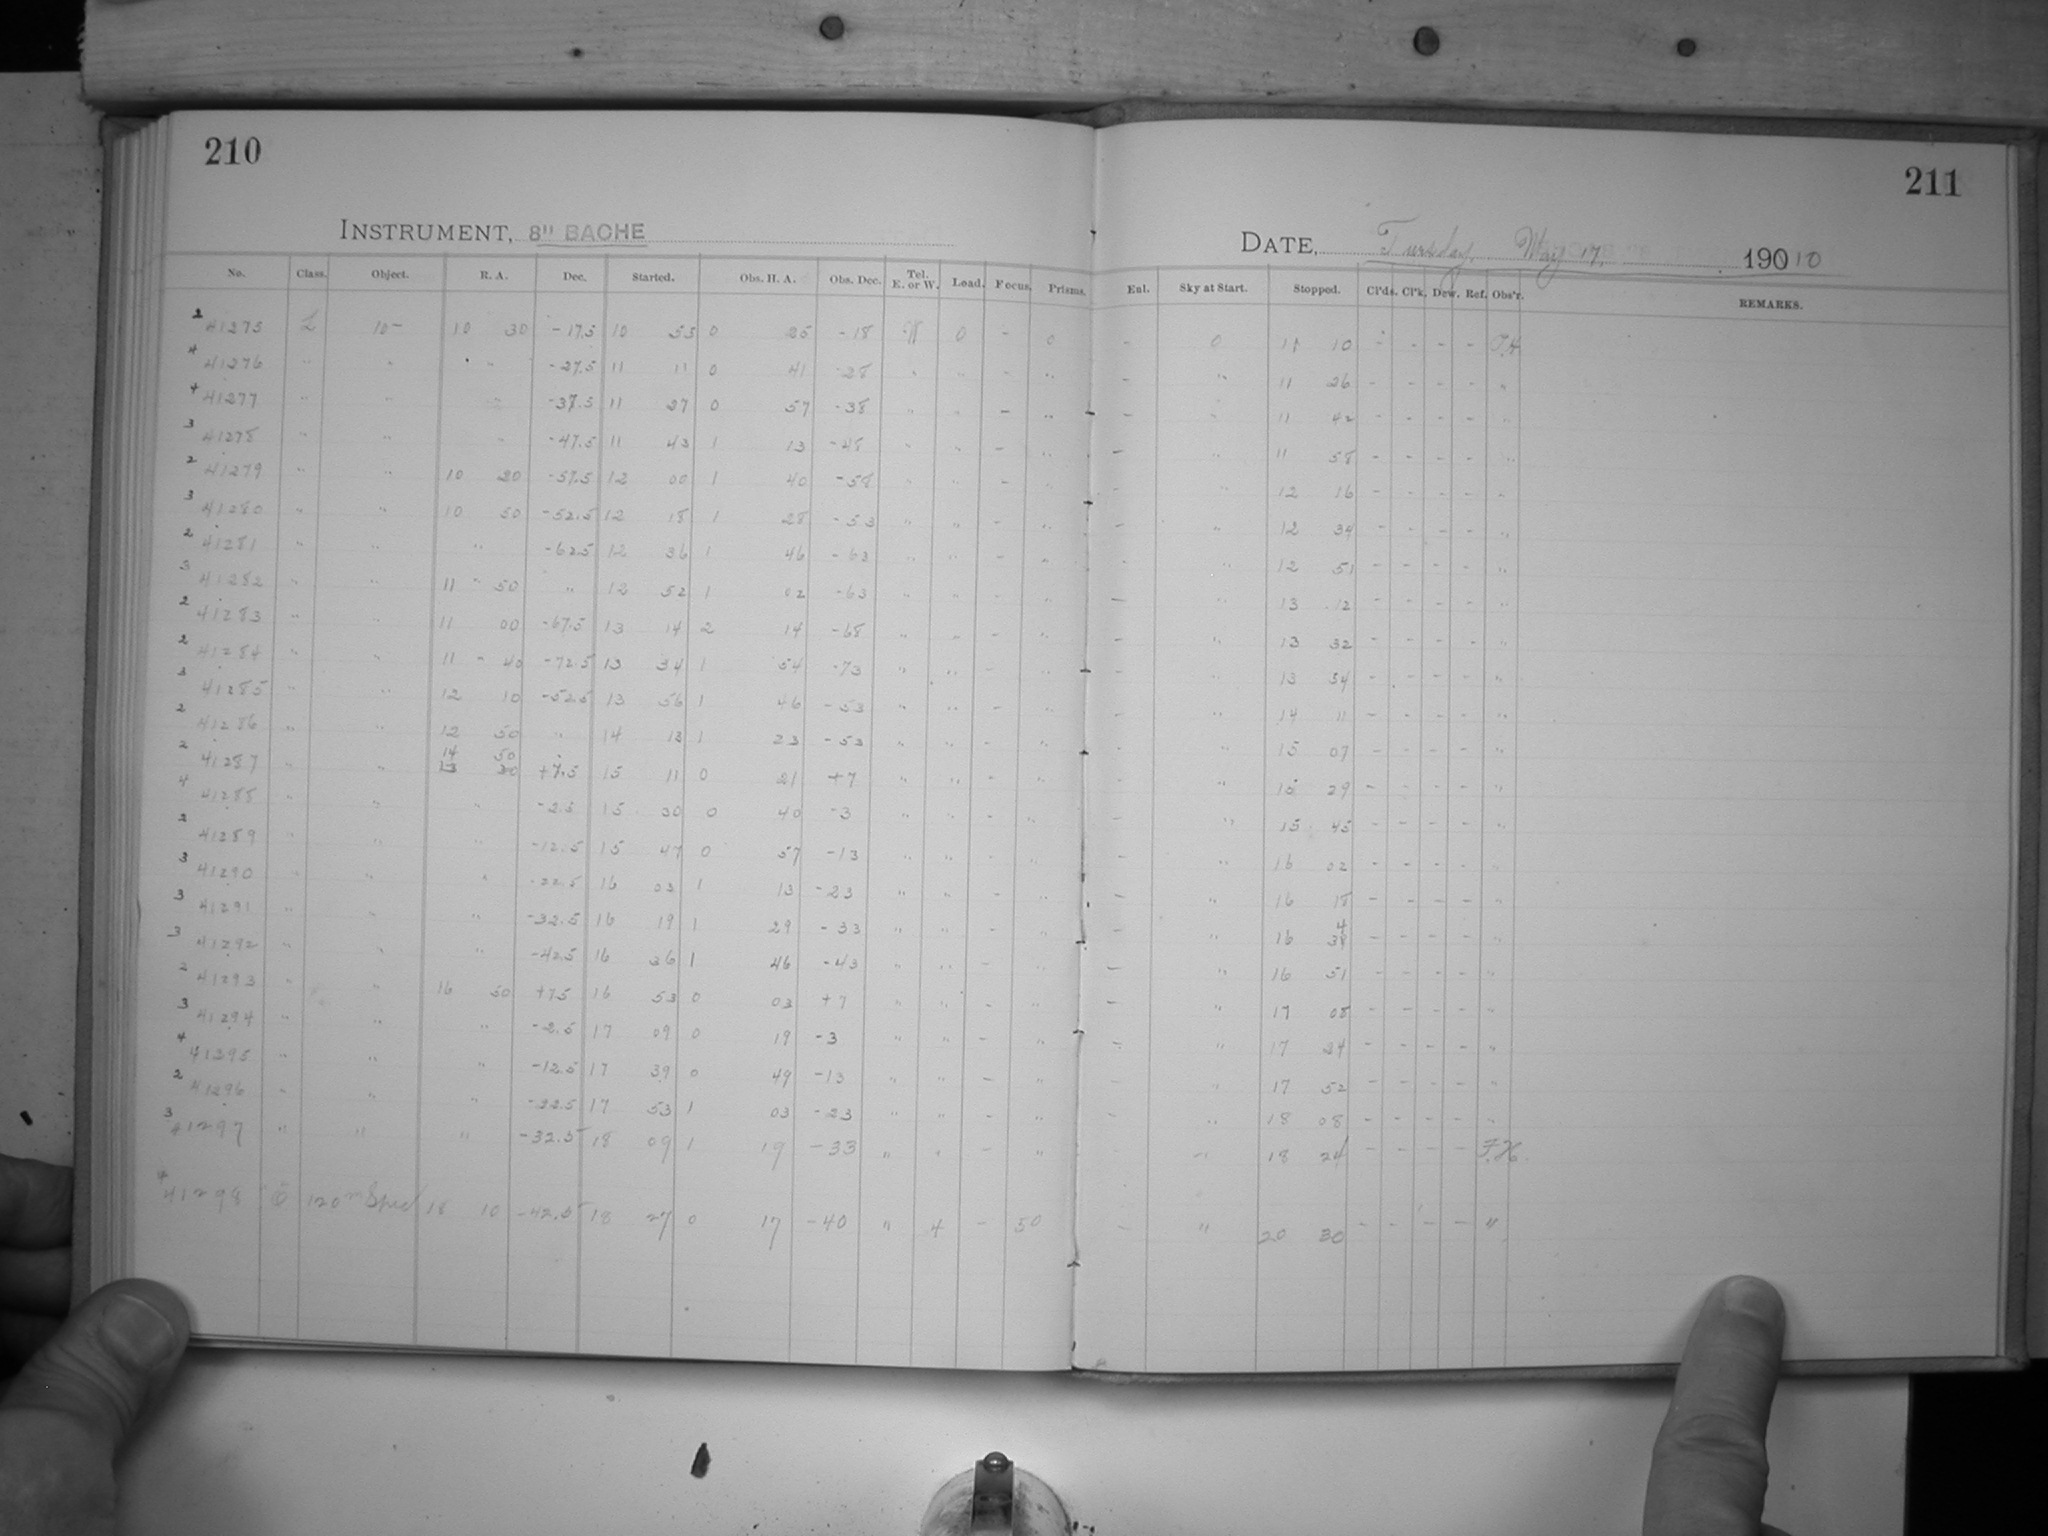 210
211
INSTRUMENT, 8" BACHE
DATE, Tuesday. May 17. 190 10
No. Class. Object. R. A. Dec. Started. Obs. H. A. Obs. Dec. Tel. E. or W. Load. Focus. Prisms. Enl. Sky at Start. Stopped. Cl'ds. Cl'k. Dew. Ref. Obs'r. REMARKS.
2 41275 L 10- 10 30 -17.5 10 55 0 25 -18 W 0 - 0 - 0 11 10 - - - - F.H
4 41276 " " " " -27.5 11 11 0 41 -28 " " - " - " 11 26 - - - - "
4 41277 " " " -37.5 11 27 0 57 -38 " " - " - " 11 42 - - - - "
3 41278 " " " -47.5 11 43 1 13 -48 " " - " - " 11 58 - - - - "
2 41279 " " 10 20 -57.5 12 00 1 40 -58 " " - " - " 12 16 - - - - "
3 41280 " " 10 50 -52.5 12 18 1 28 -53 " " - " - " 12 34 - - - - "
2 41281 " " " -62.5 12 36 1 46 -63 " " - " - " 12 51 - - - - "
3 41282 " " 11 50 " 12 52 1 02 -63 " " - " - " 13 12 - - - - "
2 41283 " " 11 00 -67.5 13 14 2 14 -68 " " - " - " 13 32 - - - - "
2 41284 " " 11 40 -72.5 13 34 1 54 -73 " " - " - " 13 54 - - - - "
3 41285 " " 12 10 -52.5 13 56 1 46 -53 " " - " - " 14 11 - - - - "
2 41286 " " 12 50 " 14 13 1 23 -53 " " - " - " 15 07 - - - - "
14 50
2 41287 " " 13 +7.5 15 11 0 21 +7 " " - " - " 15 29 - - - - "
4 41288 " " " -2.5 15 30 0 40 -3 " " - " - " 15 45 - - - - "
2 41289 " " " -12.5 15 47 0 57 -13 " " - " - " 16 02 - - - - "
3 41290 " " " -22.5 16 03 1 13 -23 " " - " - " 16 18 - - - - "
3 41291 " " " -32.5 16 19 1 29 -33 " " - " - " 16 34 - - - - "
3 41292 " " " -42.5 16 36 1 46 -43 " " - " - " 16 51 - - - - "
2 41293 " " 16 50 +7.5 16 53 0 03 +7 " " - " - " 17 08 - - - - "
3 41294 " " " -2.5 17 09 0 19 -3 " " - " - " 17 24 - - - - "
4 41295 " " " -12.5 17 39 0 49 -13 " " - " - " 17 52 - - - - "
2 41296 " " " -22.5 17 53 1 03 -23 " " - " - " 18 08 - - - - "
3 41297 " " " -32.5 18 09 1 19 -33 " " - " - " 18 24 - - - - F.H.
4 41298 120m Spec 18 10 -42.5 18 27 0 17 -40 " 4 - 50 - " 20 30 - - - - "